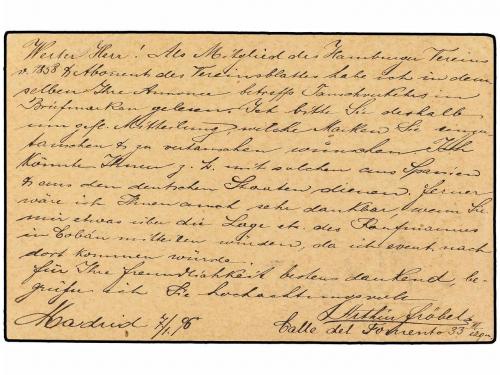 Werter Herr! Als Mitglied des Hamburger Vereins
v. 1858 & Abonent des Vereinsblattes habe ich in dem
selben Ihre Annonce betreffs Tauschverkehrs in
Briefmarken gelesen. Ich bitte Sie deshalb
um gefl. Mitteilung, welche Marken Sie einzu
tauschen & zu vertauschen wünschen. Ich
könnte Ihnen z. B. mit solchen aus Spanien
& aus den deutschen Staaten dienen. Ferner
wäre ich Ihnen sehr dankbar, wenn Sie
mir etwas über die Lage etc. des Kaufmannes
in Cobán mitteilen würden, da ich event. nach
dort kommen würde.
Für Ihre Freundlichkeit bestens dankend, be-
grüße ich Sie hochachtungsvoll
Arthur Fröbel
Madrid 7/1. 96 Calle del Fomento 33